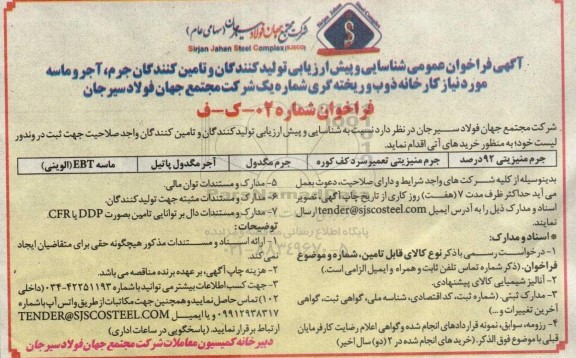 شرکت مجتمع جهان فولاد سیرجان (سهامی عام)
Sirjan Jahan Steel Complex (SJSCO)
Sirjan Jahan Steel Complex
آگهی فراخوان عمومی شناسایی و پیش ارزیابی تولید کنندگان و تامین کنندگان جرم، آجر و ماسه
مورد نیاز کارخانه ذوب و ریخته گری شماره یک شرکت مجتمع جهان فولاد سیرجان
فراخوان شماره ۰۲-ک-ف
شرکت مجتمع جهان فولاد سیرجان در نظر دارد نسبت به شناسایی و پیش ارزیابی تولید کنندگان و تامین کنندگان واجد صلاحیت جهت ثبت در وندور
لیست خود؛ به منظور خریدهای آتی اقدام نماید.
جرم منیزیتی ۹۲درصد
جرم منیزیتی تعمیر سرد کف کوره
جرم مگدول
آجر مگدول پاتیل
ماسه EBT (الوینی)
بدینوسیله از کلیه شرکت های واجد شرایط و دارای صلاحیت، دعوت بعمل
می آید حداکثر ظرف مدت ۷ (هفت) روز کاری از تاریخ چاپ آگهی، تصویر
اسناد و مدارک ذیل را به آدرس ایمیل tender@sjscosteel.com ارسال
نمایند.
* اسناد و مدارک:
۱- درخواست رسمی با ذکر نوع کالای قابل تامین، شماره و موضوع
فراخوان. (ذکر شماره تماس تلفن ثابت و همراه و ایمیل الزامی است.)
۲- آنالیز شیمیایی کالای پیشنهادی.
۳- مدارک ثبتی. (شماره ثبت، کد اقتصادی، شناسه ملی، گواهی ثبت، گواهی
آخرین تغییرات و...)
۴- رزومه، سوابق، نمونه قراردادهای انجام شده و گواهی اعلام رضایت کارفرمایان
قبلی با موضوع فوق الذکر. (خریدهای انجام شده در ۲ (دو) سال اخیر)
۵- مدارک و مستندات توان مالی.
۶- مدارک و مستندات مثبته جهت تولیدکنندگان.
۷- مدارک و مستندات دال بر توانایی تامین بصورت DDP یا CFR.
توضیحات:
۱- ارائه اسناد و مستندات مذکور هیچگونه حقی برای متقاضیان ایجاد
نمی کند.
۲- هزینه چاپ آگهی، بر عهده برنده مناقصه می باشد.
۳- جهت کسب اطلاعات بیشتر می توانید با شماره ۴۲۲۵۱۱۹۳-۰۳۴ (داخلی
۱۰۲) تماس حاصل نمایید و همچنین جهت مکاتبات از طریق واتس آپ با شماره
۰۹۹۱۲۹۳۸۳۱۷ و یا ایمیل TENDER@SJSCOSTEEL.COM
ارتباط برقرار نمایید. (پاسخگویی در ساعات اداری)
دبیرخانه کمیسیون معاملات شرکت مجتمع جهان فولاد سیرجان